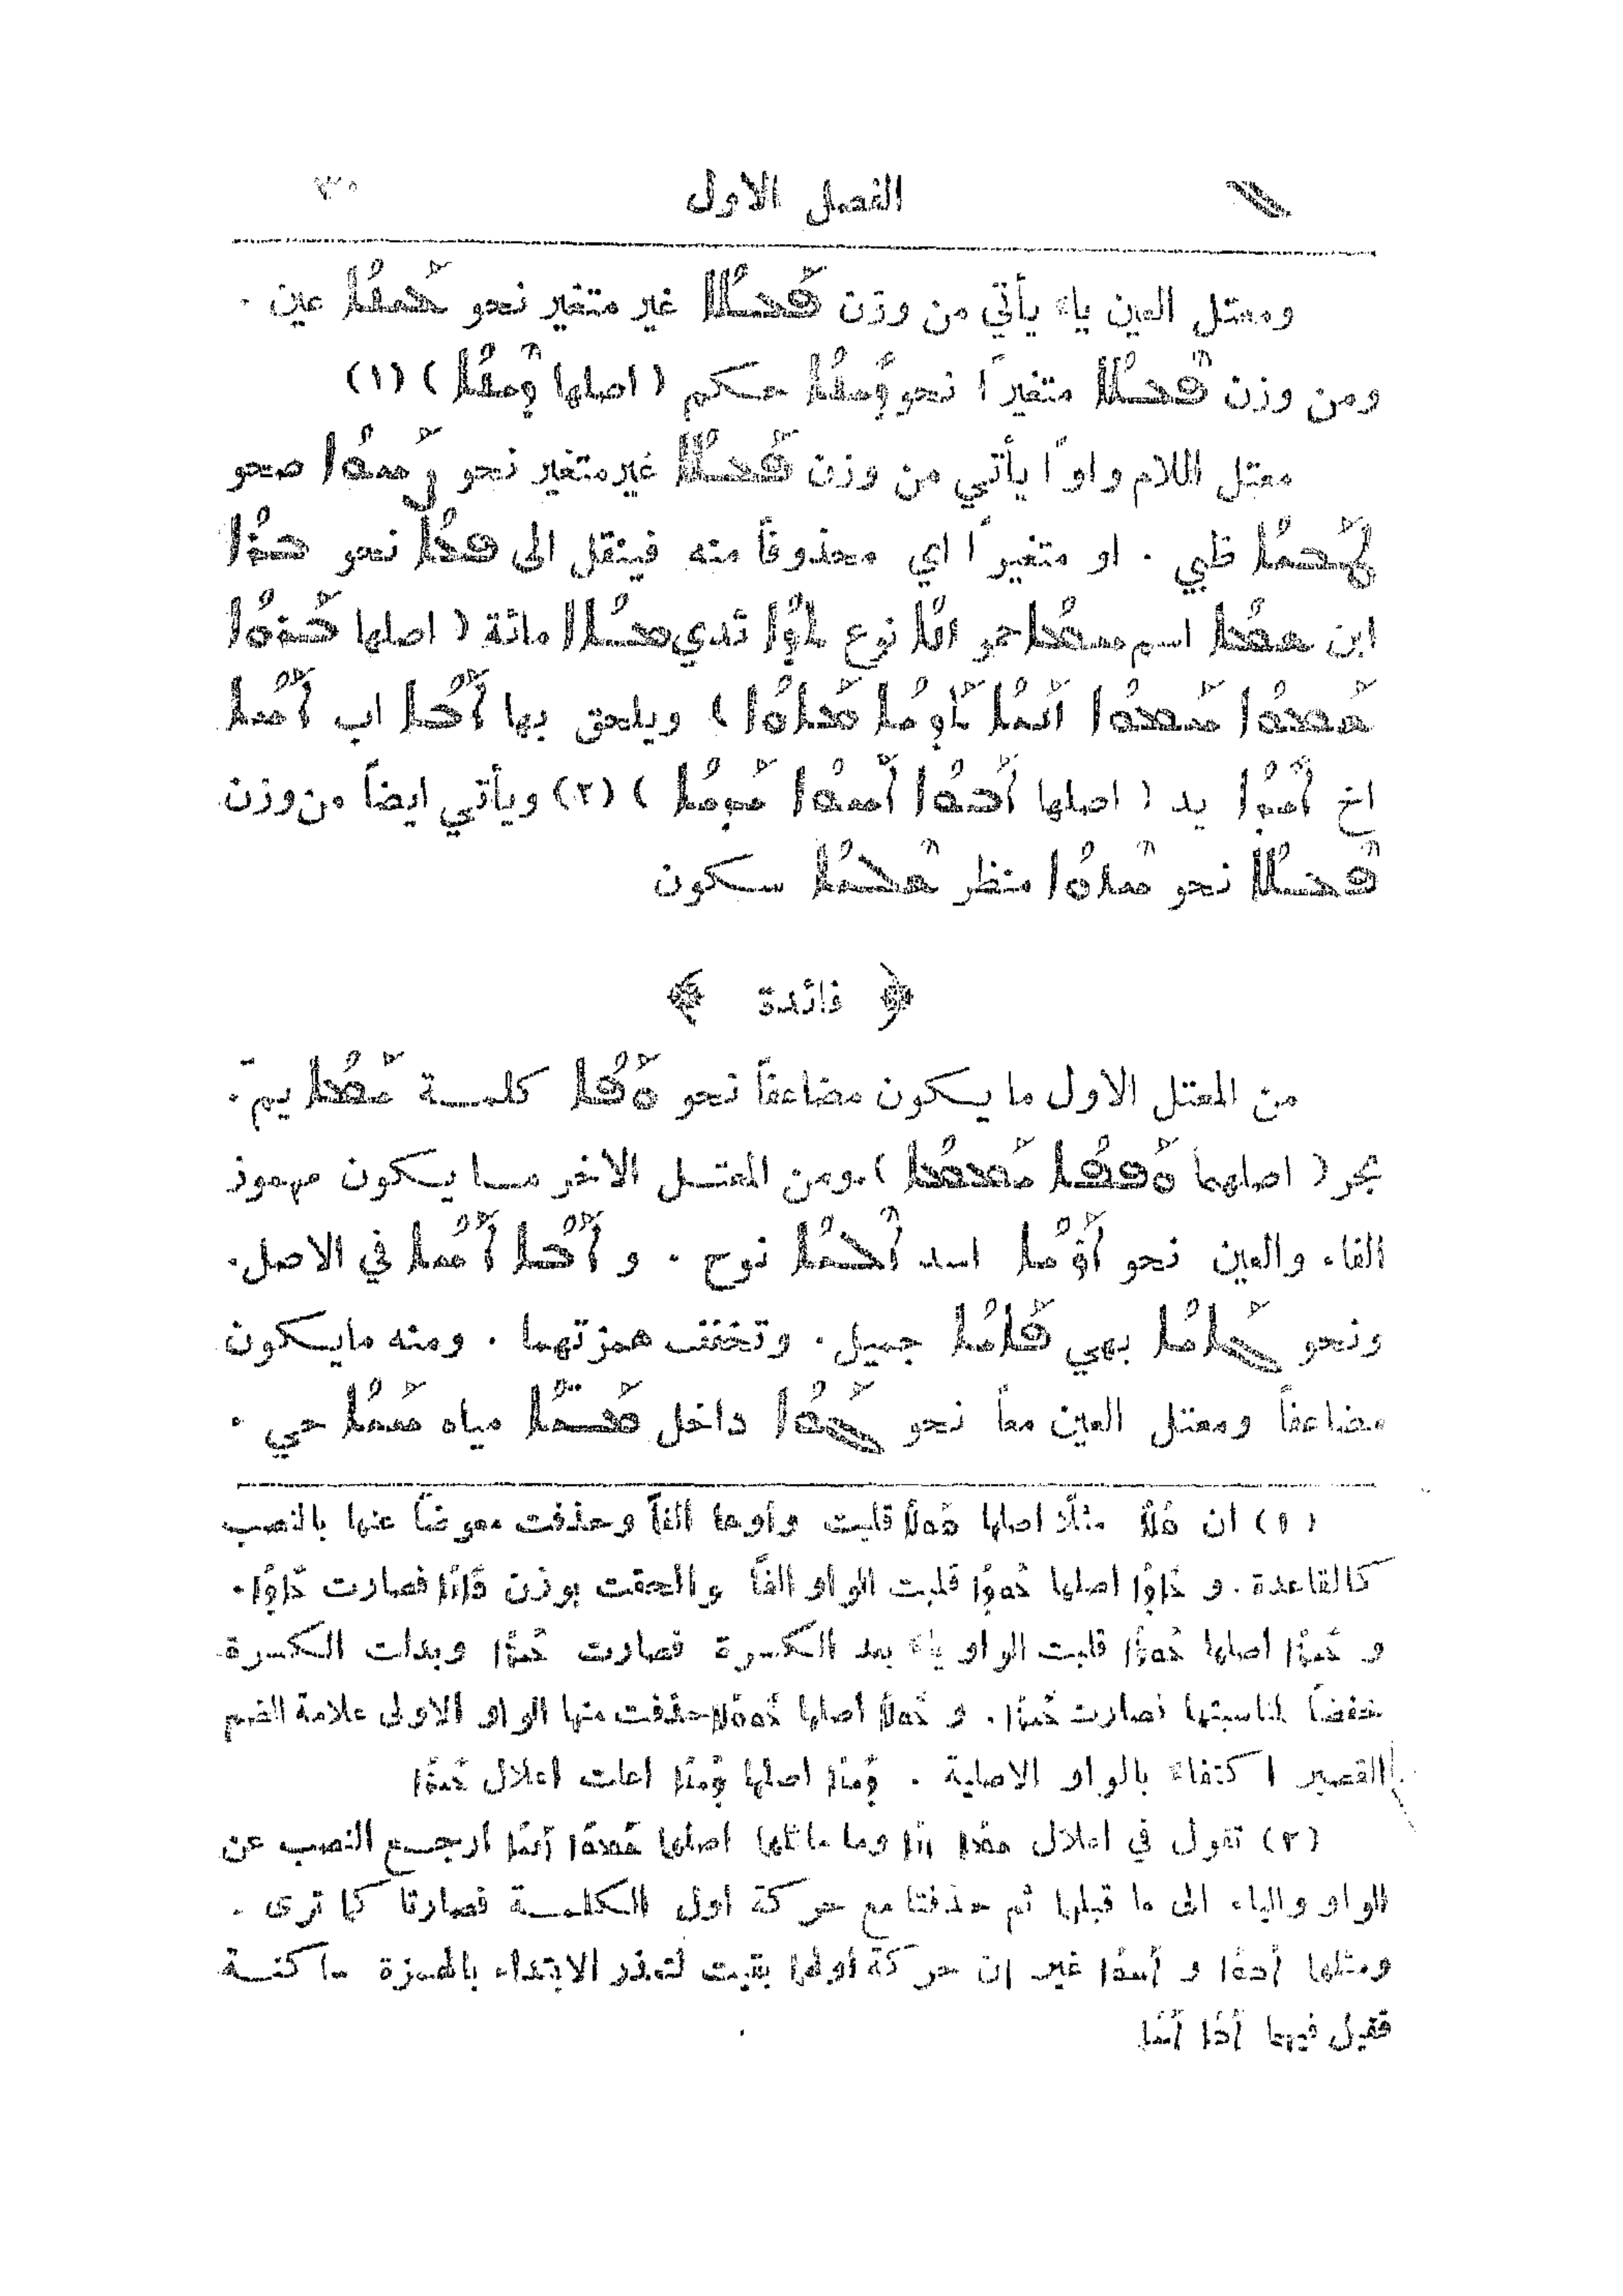 الفصل الاول
ومعتل العين ياء يأتي من وزن ܦܰܥܠܳܐ غير متغير نحو ܥܰܝܢܳܐ عين .
ومن وزن ܦܶܥܠܳܐ متغيرًا نحو ܕܺܝܢܳܐ حكم ( اصلها ܕܶܝܢܳܐ ) (١)
معتل اللام واوًا يأتي من وزن ܦܰܥܠܳܐ غير متغير نحو ܨܰܚܘܳܐ صحو
ܛܰܒܝܳܐ ظبي . او متغيرًا اي محذوفًا منه فينقل الى ܦܥܳܐ نحو ܒܪܳܐ
ابن ܫܡܳܐ اسم ܚܡܳܐ حمو ܙܢܳܐ نوع ܬܕܳܐ ثدي ܡܐܐ مائة ( اصلها ܒܰܪܘܳܐ
ܫܰܡܘܳܐ ܚܰܡܘܳܐ ܙܰܢܝܳܐ ܬܰܕܝܳܐ ) ويلحق بها ܐܰܒܳܐ اب ܐܰܚܳܐ
اخ ܐܺܝܕܳܐ يد ( اصلها ܐܰܒܘܳܐ ܐܰܚܘܳܐ ܝܰܕܝܳܐ ) (٢) ويأتي ايضاً من وزن
ܦܶܥܠܳܐ نحو ܚܶܙܘܳܐ منظر ܫܶܠܝܳܐ سكون
﴿ فائدة ﴾
من المعتل الاول ما يكون مضاعفاً نحو كلمة ܝܰܡܳܐ يمّ .
بحر ( اصلهما ܝܰܡܡܳܐ ) . ومن المعتل الاخر ما يكون مهموز
الفاء والعين نحو ܐܰܪܝܳܐ اسد ܐܶܠܝܳܐ نوح . و ܐܰܒܳܐ ܐܰܚܳܐ في الاصل .
ونحو ܓܰܐܝܳܐ بهي ܦܰܐܝܳܐ جميل . وتخفف همزتهما . ومنه مايكون
مضاعفاً ومعتل العين معاً نحو ܓܰܘܳܐ داخل ܡܰܝ̈ܳܐ مياه ܚܰܝܳܐ حي .
(١) ان مثلًا اصلها قلبت واوها الفاً وحذفت معوضاً عنها بالنصب
كالقاعدة . و اصلها قلبت الواو الفاً والحقت بوزن فصارت .
و اصلها قلبت الواو ياء بعد الكسرة فصارت وبدلت الكسرة
خفضاً لمناسبتها فصارت . و اصلها حذفت منها الواو الاولى علامة الضم
القصير اكتفاء بالواو الاصلية . ܕܺܝܢܳܐ اصلها ܕܶܝܢܳܐ اعلت اعلال
(٢) تقول في اعلال ܫܡܳܐ ܙܢܳܐ وما ماثلها اصلها ܫܰܡܘܳܐ ܙܰܢܝܳܐ ارجع النصب عن
الواو والياء الى ما قبلها ثم حذفتا مع حركة اول الكلمة فصارتا كما ترى .
ومثلها ܐܰܒܘܳܐ و ܐܰܚܘܳܐ غير ان حركة أولها بقيت لتعذر الابتداء بالهمزة ساكنة
فقيل فيهما ܐܰܒܳܐ ܐܰܚܳܐ